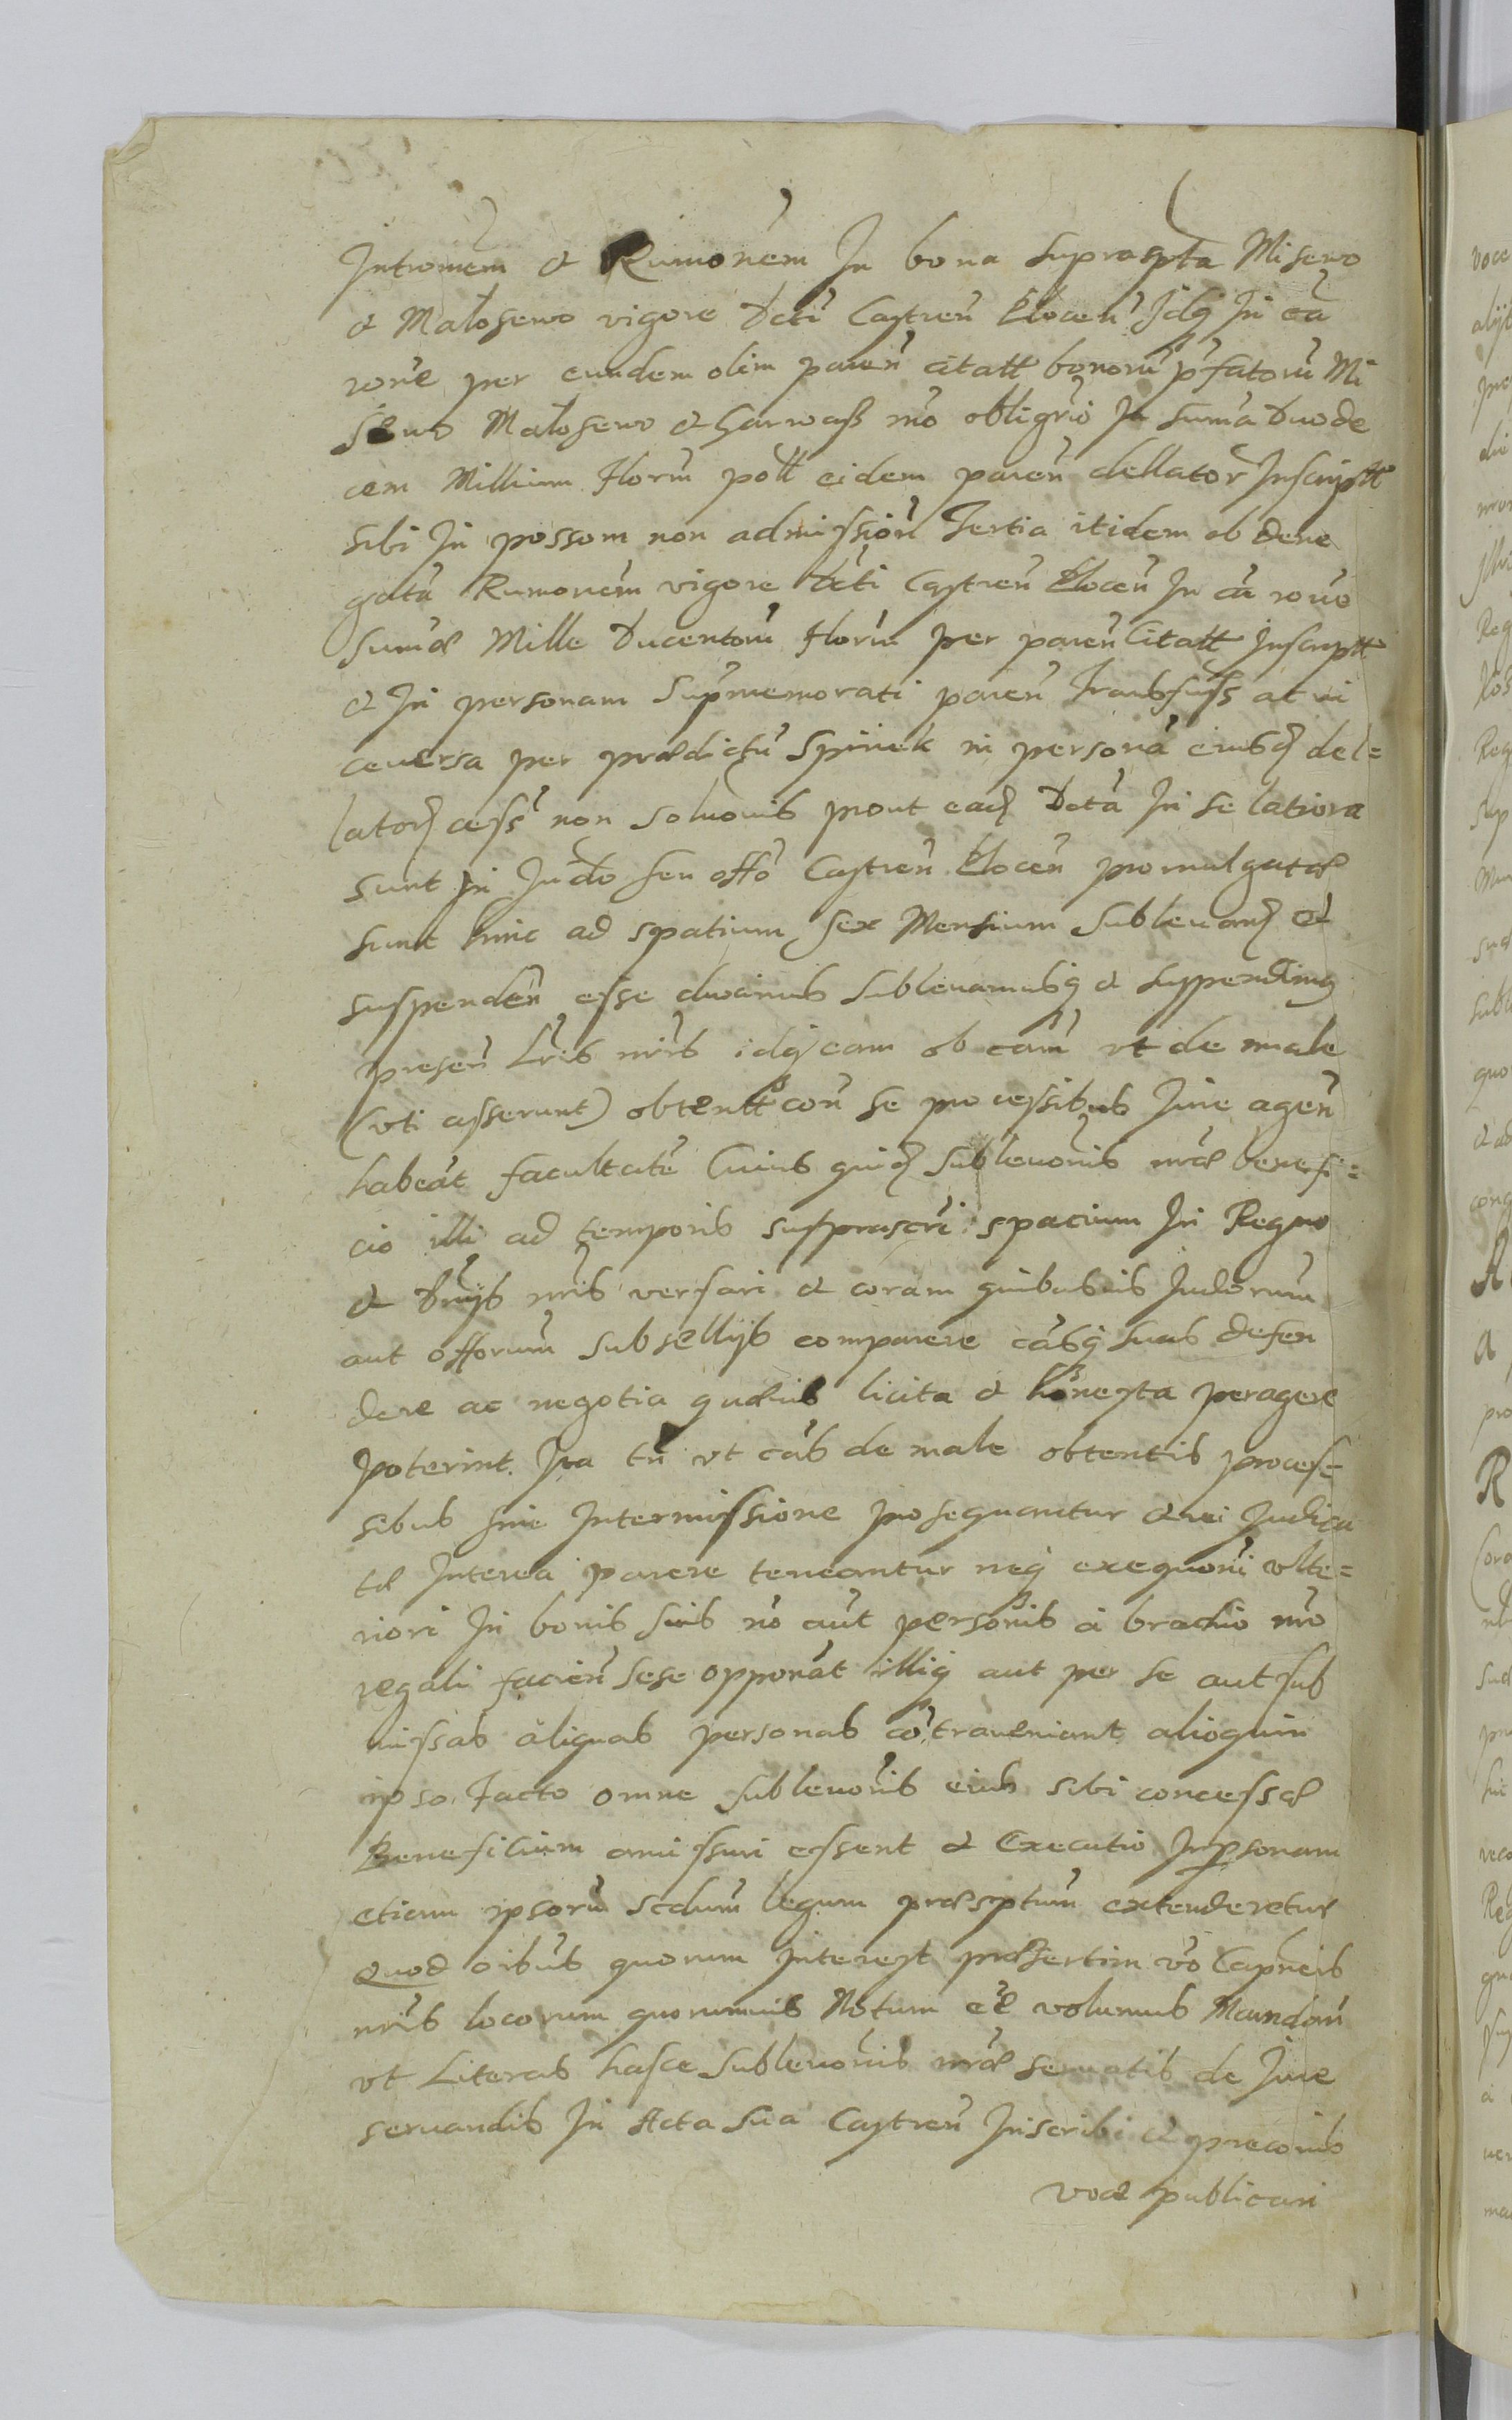 Intromem̃ & Rumonem̃ In bona suprasc̃pta Misewo
& Malosewo vigore Dcti Castreñ Ploceñ Idq3 In cã
rone per eundem olim pareñ citatt bonorũ p̃fatorũ Mi
sewo Malosewo & Garwass mõ obligrio In summa Duode
cem Millium Florm̃ poll eidem pareñ dellator̃ Inscriptt
sibi In possom non admission̄ Tertia itidem ob dene
gatã Rumonem̃ vigore Dcti Castreñ Ploceñ In cã rone
summæ Mille Ducentorũ florm̃ per pareñ Citatt Inscriptt
& In personam Supmemorati pareñ transfuss at vi
ceuersa per prædictũ Spinek in personã eiusd del=
lator cess̃ non soluonis prout ead Dcta In se latiora
sunt In Judo seu offo Castreñ Ploceñ promulgatæ
sunt hinc ad spatium sex Mensium subleuand &
suspendeñ esse duximus subleuamusq3 & suspendimq
preseñ Lr̃is nr̃is idq3 eam ob cãm vt de male
(vti asserunt) obtentt con se processibus Jure ageñ
habeat facultatẽ Cuius quid subleuonis nr̃æ benefi=
cio illi ad temporis suprascri spacium In Regno
& Dnijs nr̃is versari & coram quibusuis Judiorum
aut offorum subsellijs comparere cãsq3 suas defen
dere ac negotia quæuis licita & honesta peragere
poterint. Ita tñ vt cãs de male obtentis proces=
sibus sine Intermissione prosequantur & rei Judica
tæ Interea parere teneantur neq3 exequoni vlte=
riori In bonis suis nõ aut personis a brachio nr̃o
regali facieñ sese opponãt illiq3 aut per se aut sub
missas aliquas personas cõtraueniant alioquin
ipso facto omne subleuonis eius sibi concessæ
Beneficium amissuri essent & Executio In p̃sonam
etiam ipsorũ scdum̃ legum præsptum̃ extenderetur
Quod oibus quorum Interest præsertim vo Capneis
nr̃is locorum quorumuis Notum eẽ volumus Mandañ
vt Literas hasce subleuonis nr̃æ seruatis de Jure
seruandis In Acta sua Castreñ Inscribi & preconis
voce publicari